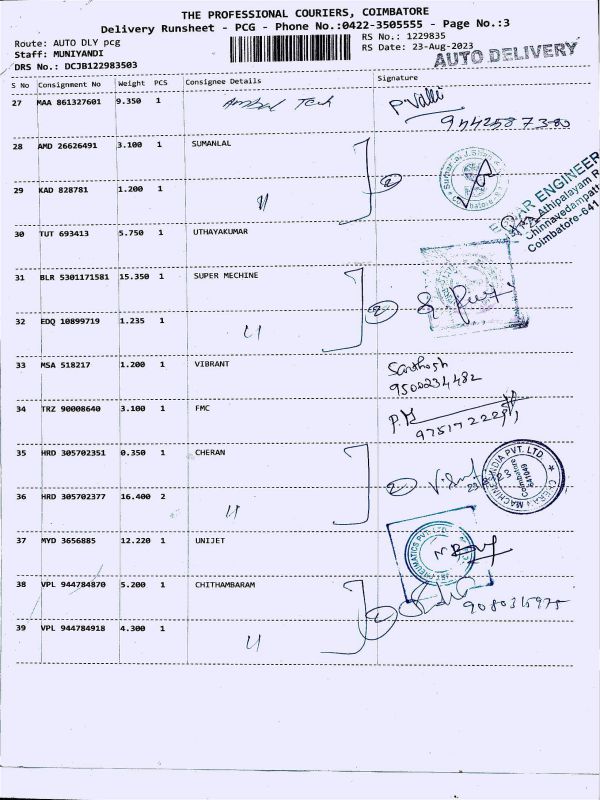 THE PROFESSIONAL COURIERS, COIMBATORE
Delivery Runsheet - PCG - Phone No.:0422-3505555 - Page No.:3
Route: AUTO DLY pcg
RS No.: 1229835
Staff: MUNIYANDI
RS Date: 23-Aug-2023
AUTO DELIVERY
DRS No.: DCJB122983503
S No Consignment No Weight PCS Consignee Details Signature
27 MAA 861327601 9.350 1 P. Valli
28 AMD 26626491 3.100 1 SUMANLAL
29 KAD 828781 1.200 1 〃 2
ENGINEER
Athipalayam R
Chinnavedampatt
Coimbatore-641
30 TUT 693413 5.750 1 UTHAYAKUMAR
31 BLR 5301171581 15.350 1 SUPER MECHINE
32 EDQ 10899719 1.235 1 〃 2
33 MSA 518217 1.200 1 VIBRANT Santhosh
9500234482
34 TRZ 90008640 3.100 1 FMC
35 HRD 305702351 0.350 1 CHERAN
36 HRD 305702377 16.400 2 〃 2
MACHINE INDIA PVT. LTD
Coimbatore
641049
37 MYD 3656885 12.220 1 UNIJET
JET PNEUMATICS PVT. LTD
38 VPL 944784870 5.200 1 CHITHAMBARAM
39 VPL 944784918 4.300 1 〃 2